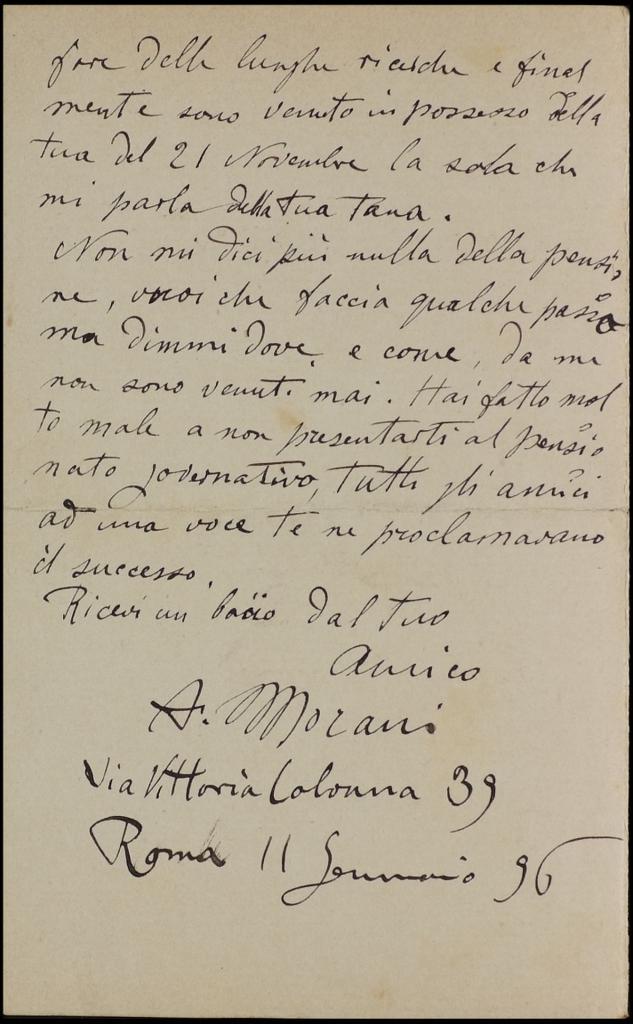 fare delle lunghe ricerche e final
mente sono venuto in possesso della
tua del 21 Novembre la sola che
mi parla della tua tana.
Non mi dici più nulla della pensio
ne, vuoi che faccia qualche passo
ma dimmi dove, e come, da me
non sono venuti mai. Hai fatto mol
to male a non presentarti al pensio
nato governativo, tutti gli amici
ad una voce te ne proclamavano
il successo.
Ricevi un bacio dal tuo
Amico
A. Morani
Via Vittoria Colonna 39
Roma 11 Gennaio 96